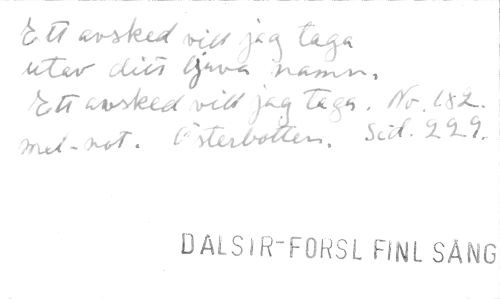 Ett avsked vill jag taga
utav ditt ljuva namn.
Ett avsked vill jag taga. No. 182.
mel-not. Österbotten. Sid. 229.
DALSTR-FORSL FINL SÅNG